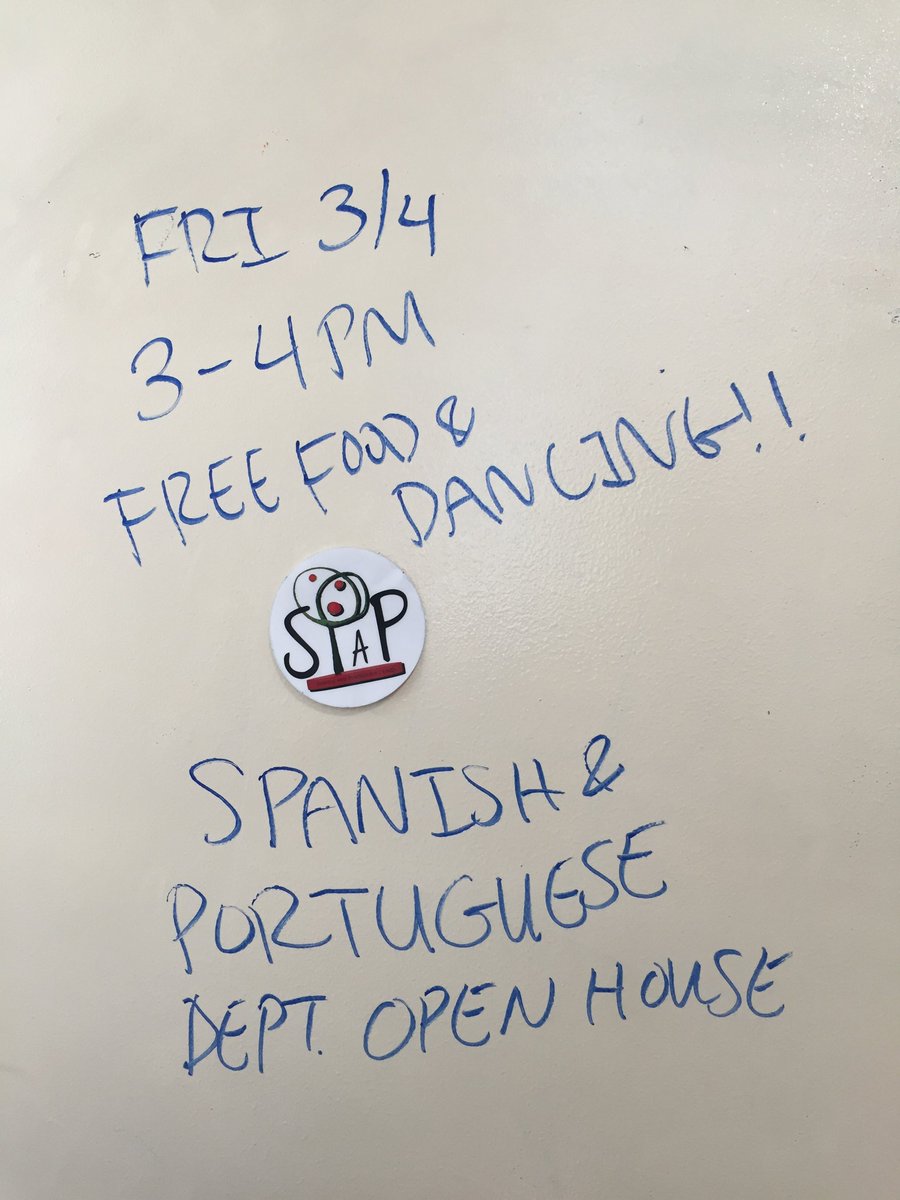 FRI 3/4
3-4PM
FREE FOOD &
DANCING!!
SPaP
SPANISH &
PORTUGUESE
DEPT. OPEN HOUSE